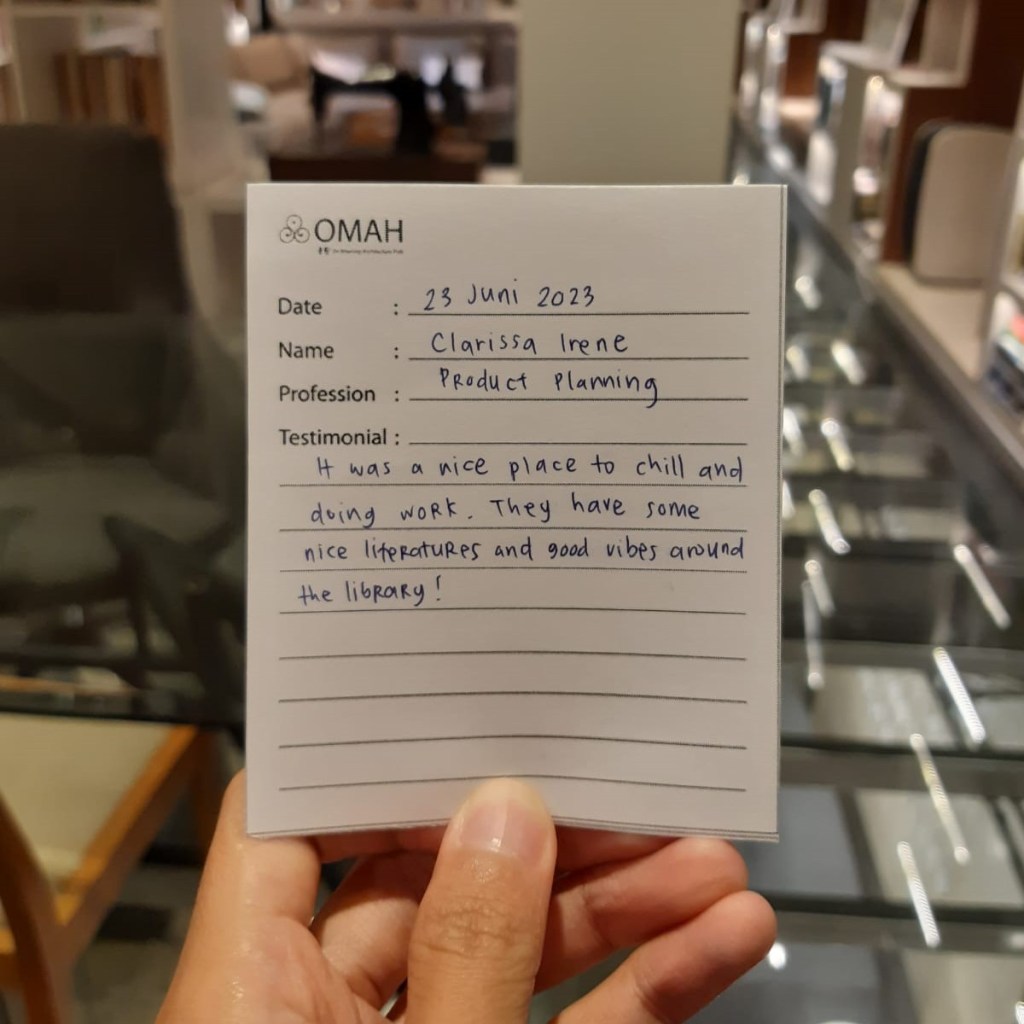 OMAH
Date : 23 Juni 2023
Name : Clarissa Irene
Profession : Product Planning
Testimonial :
It was a nice place to chill and
doing work. They have some
nice literatures and good vibes around
the library!